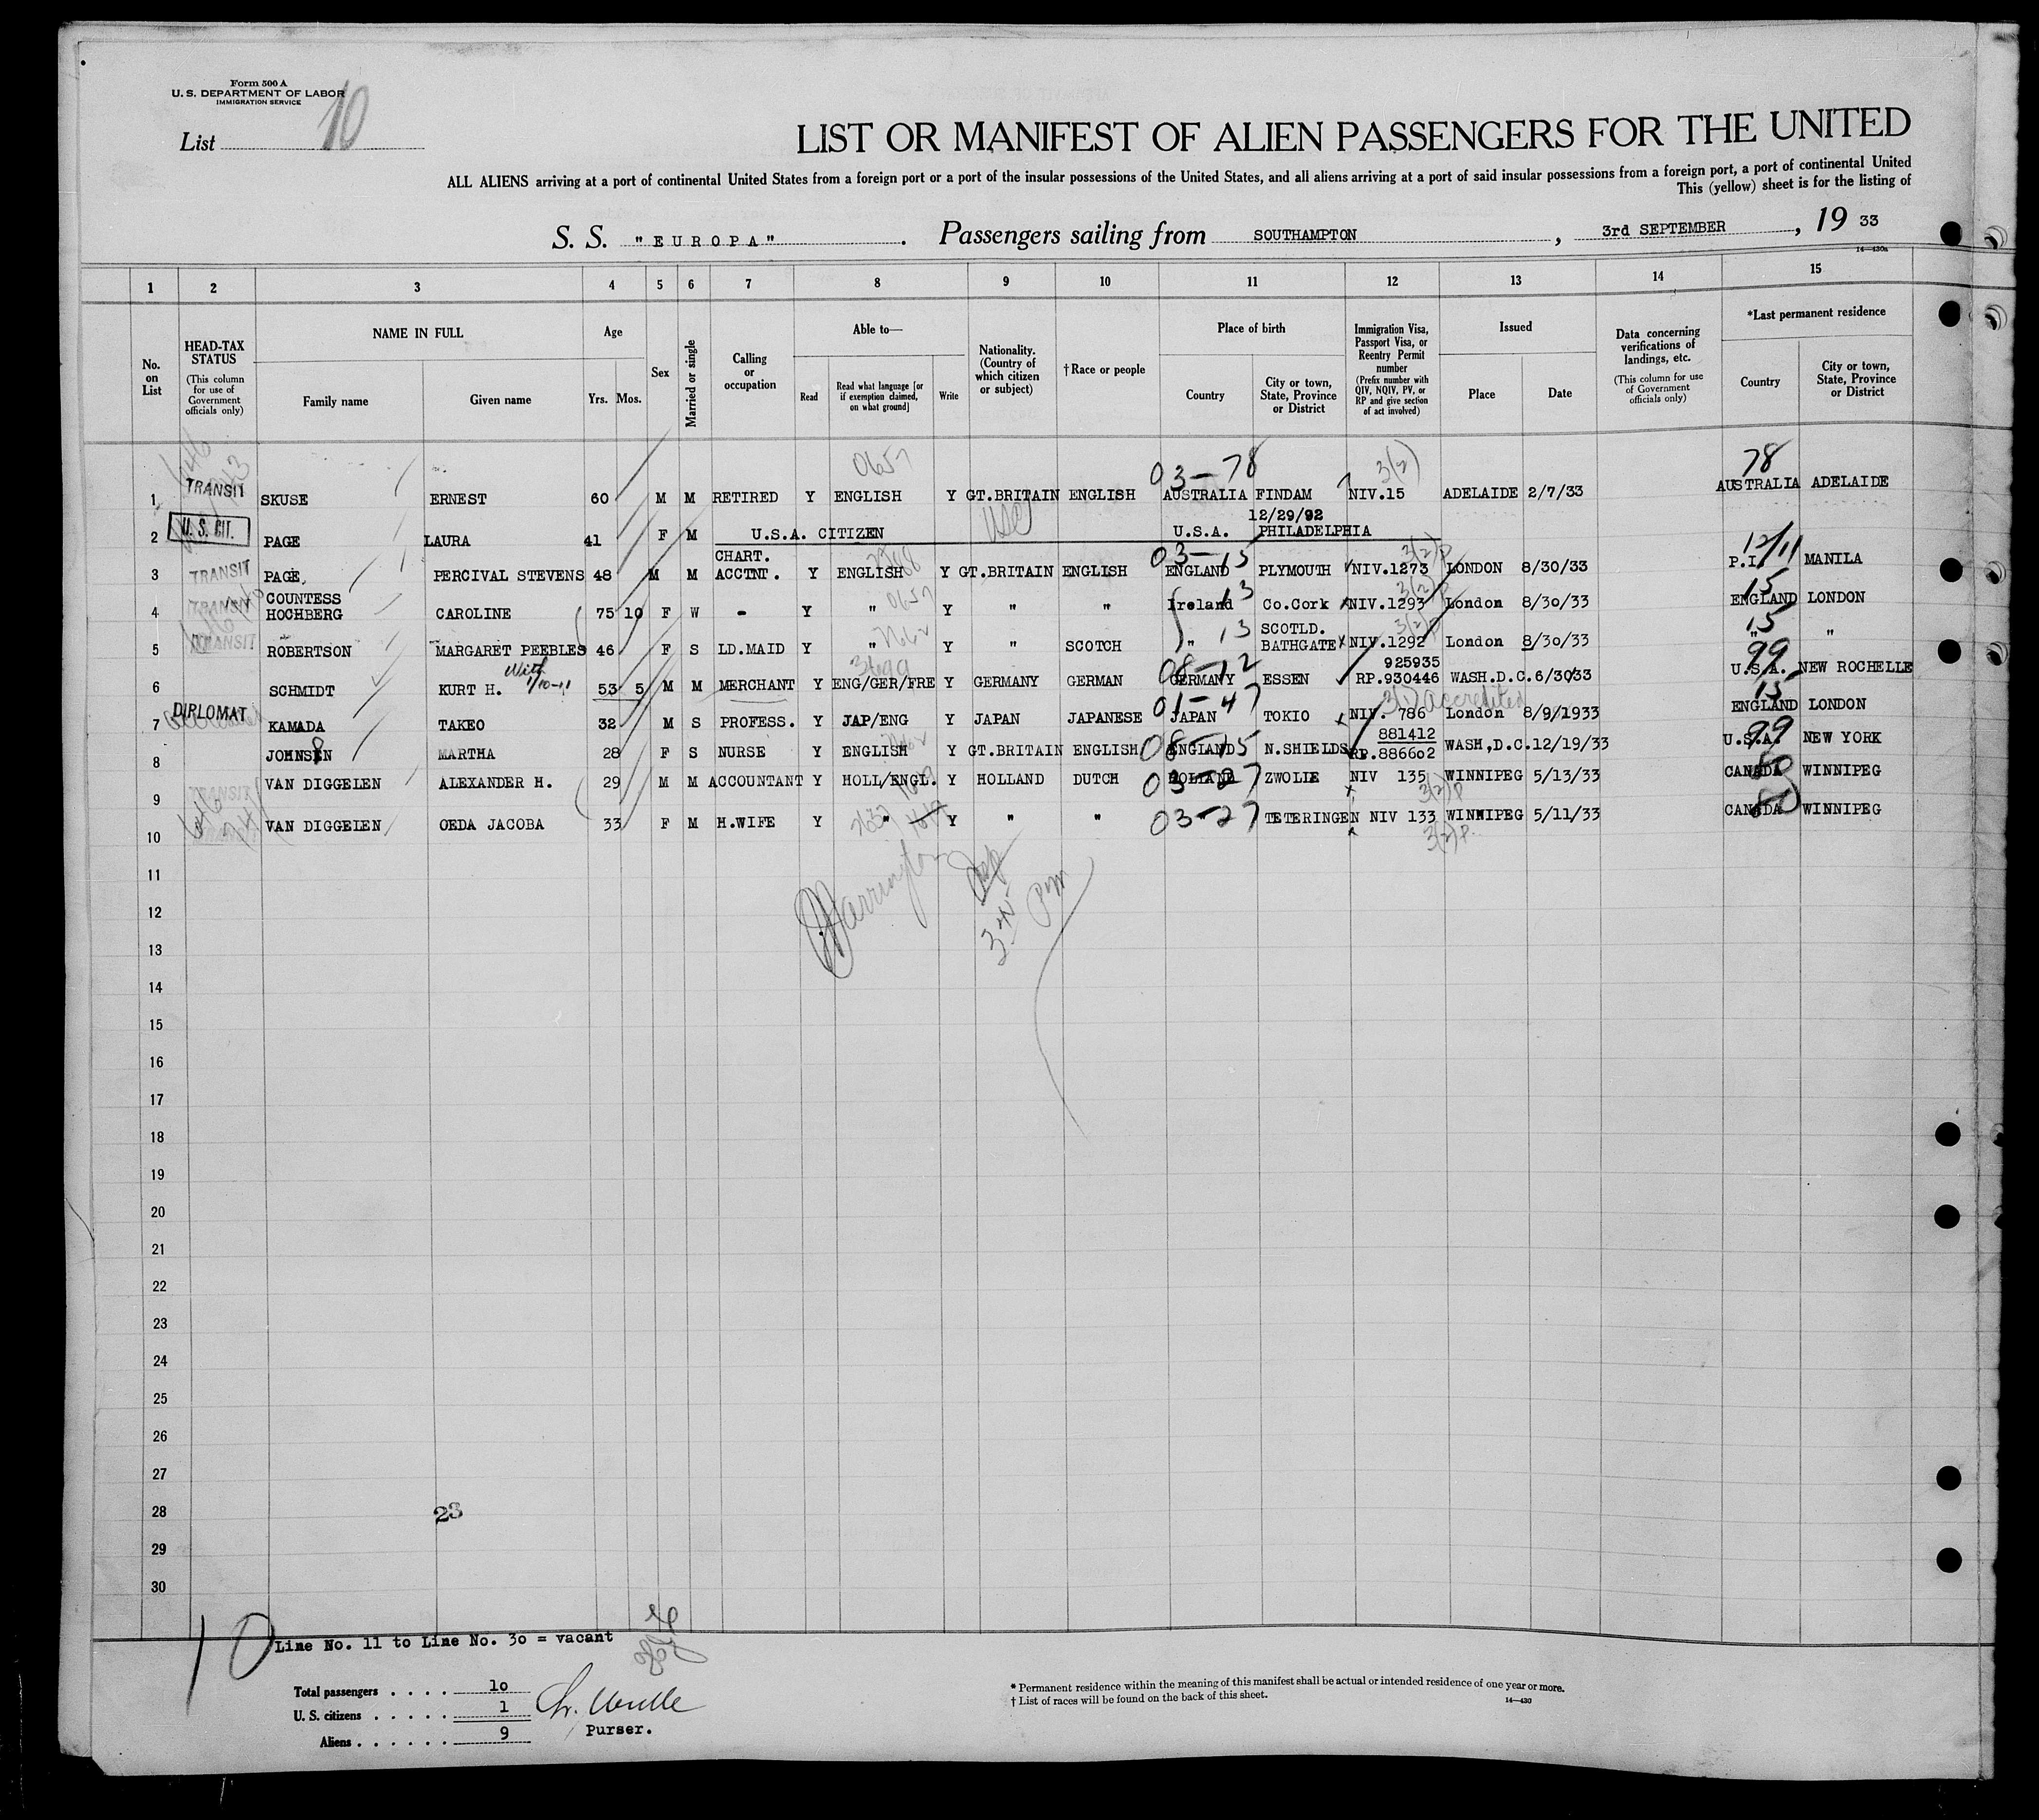 Form 500 A
U. S. DEPARTMENT OF LABOR
IMMIGRATION SERVICE
List 10
LIST OR MANIFEST OF ALIEN PASSENGERS FOR THE UNITED
ALL ALIENS arriving at a port of continental United States from a foreign port or a port of the insular possessions of the United States, and all aliens arriving at a port of said insular possessions from a foreign port, a port of continental United
This (yellow) sheet is for the listing of
S. S. "EUROPA". Passengers sailing from SOUTHAMPTON, 3rd SEPTEMBER, 19 33
14—430a
1 2 3 4 5 6 7 8 9 10 11 12 13 14 15
No. on List
HEAD-TAX STATUS (This column for use of Government officials only)
NAME IN FULL
Family name
Given name
Age
Yrs. Mos.
Sex
Married or single
Calling or occupation
Able to—
Read
Read what language [or if exemption claimed, on what ground]
Write
Nationality. (Country of which citizen or subject)
†Race or people
Place of birth
Country
City or town, State, Province or District
Immigration Visa, Passport Visa, or Reentry Permit number (Prefix number with QIV, NQIV, PV, or RP and give section of act involved)
Issued
Place
Date
Data concerning verifications of landings, etc. (This column for use of Government officials only)
*Last permanent residence
Country
City or town, State, Province or District
0657 03-78 3(2) 78
1 TRANSIT SKUSE ERNEST 60 M M RETIRED Y ENGLISH Y GT.BRITAIN ENGLISH AUSTRALIA FINDAM NIV.15 ADELAIDE 2/7/33 AUSTRALIA ADELAIDE
12/29/92
2 U.S. CIT. PAGE LAURA 41 F M U.S.A. CITIZEN USC U.S.A. PHILADELPHIA
CHART. 03-15 3(2)P 12/11
3 TRANSIT PAGE, PERCIVAL STEVENS 48 M M ACCTNT. Y ENGLISH Y GT.BRITAIN ENGLISH ENGLAND PLYMOUTH NIV.1273 LONDON 8/30/33 P.I. MANILA
COUNTESS 0657 13 3(2)P 15
4 TRANSIT HOCHBERG CAROLINE 75 10 F W - Y " Y " " Ireland Co.Cork NIV.1293 London 8/30/33 ENGLAND LONDON
13 SCOTLD. 3(2)P 15
5 TRANSIT ROBERTSON MARGARET PEEBLES 46 F S LD.MAID Y " Y " SCOTCH " BATHGATE NIV.1292 London 8/30/33 " "
08-12 925935 99
6 SCHMIDT KURT H. 53 5 M M MERCHANT Y ENG/GER/FRE Y GERMANY GERMAN GERMANY ESSEN RP.930446 WASH.D.C. 6/30/33 U.S.A. NEW ROCHELLE
01-47 3(1) Accredited 15
7 DIPLOMAT KAMADA TAKEO 32 M S PROFESS. Y JAP/ENG Y JAPAN JAPANESE JAPAN TOKIO NIV. 786 London 8/9/1933 ENGLAND LONDON
08-15 881412 99
8 JOHNSEN MARTHA 28 F S NURSE Y ENGLISH Y GT.BRITAIN ENGLISH ENGLAND N.SHIELDS RP.886602 WASH,D.C. 12/19/33 U.S.A. NEW YORK
9 TRANSIT VAN DIGGELEN ALEXANDER H. 29 M M ACCOUNTANT Y HOLL/ENGL. Y HOLLAND DUTCH HOLLAND 03-27 ZWOLLE NIV 135 WINNIPEG 5/13/33 CANADA 80 WINNIPEG
3(2)P
10 VAN DIGGELEN OEDA JACOBA 33 F M H.WIFE Y " Y " " 03-27 TETERINGEN NIV 133 WINNIPEG 5/11/33 CANADA 80 WINNIPEG
3(2)P.
11
12
13
14
15
16
17
18
19
20
21
22
23
24
25
26
27
28 23
29
30
10 Line No. 11 to Line No. 30 = vacant
Total passengers . . . . 10
U. S. citizens . . . . . 1
Aliens . . . . . . 9
Purser.
* Permanent residence within the meaning of this manifest shall be actual or intended residence of one year or more.
† List of races will be found on the back of this sheet.
14—430